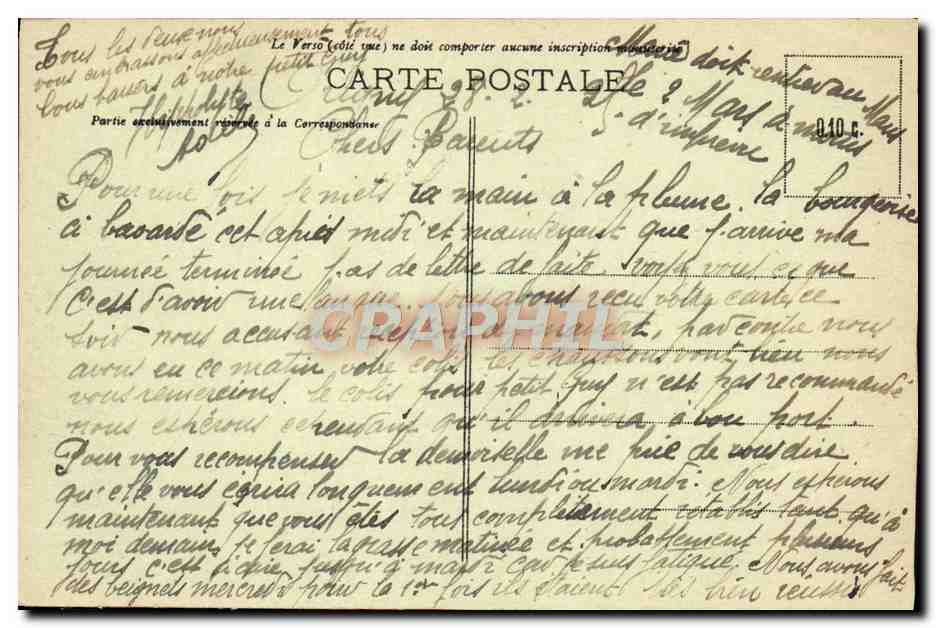 Le Verso (côté vue) ne doit comporter aucune inscription manuscrite
CARTE POSTALE
Partie exclusivement réservée à la Correspondance
0,10 c.
CPAPHIL
Chers Parents
Pour une fois je mets la main à la plume. la bourgeoise
à bavardé cet après midi et maintenant que j'arrive ma
journée terminée pas de lettre de faite. voyez vous ce que
c'est d'avoir une langue. nous avons reçu votre carte ce
soir nous accusant de mandat, par contre nous
avons eu ce matin votre colis les chaussons vont bien nous
vous remercions. le colis pour petit Guy n'est pas recommandé
nous espérons cependant qu'il arrivera à bon port.
Pour vous recompenser la demoiselle me prie de vous dire
qu'elle vous ecrira longuement lundi ou mardi. Nous espérons
maintenant que vous êtes tous complètement rétablis tant qu'à
moi demain je ferai la grasse matinée et probablement plusieurs
jours c'est à dire jusqu'à mardi car je suis fatigué. Nous avons fait
des beignets mercredi pour la 1ère fois ils étaient très bien réussis
Tous les deux nous
vous embrassons affectueusement tous
bons baisers à notre petit Guy
Hippolyte
Mémé doit rentrer au Mans
le 2 Mars à moins
d'imprévu